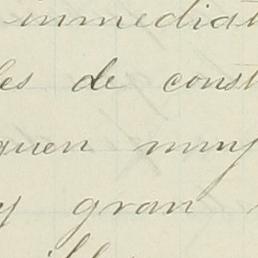 immediat
les de const
quen muy
y gran